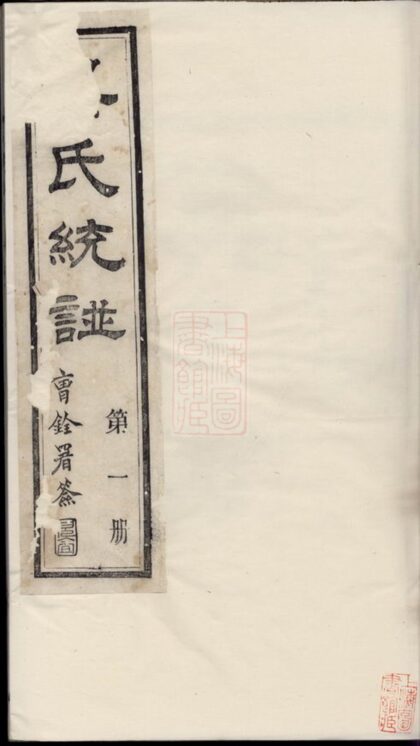 氏統諩
第一册
曹銓署簽
上海圖書館藏
上海圖書館藏